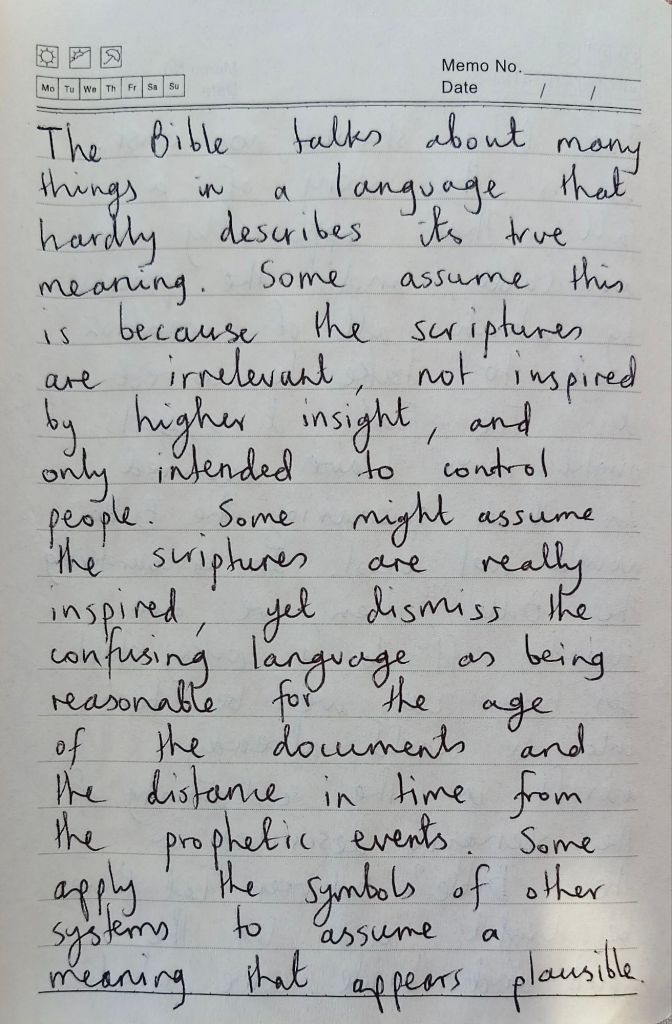 Memo No.
Mo Tu We Th Fr Sa Su
Date / /
The Bible talks about many
things in a language that
hardly describes its true
meaning. Some assume this
is because the scriptures
are irrelevant, not inspired
by higher insight, and
only intended to control
people. Some might assume
the scriptures are really
inspired, yet dismiss the
confusing language as being
reasonable for the age
of the documents and
the distance in time from
the prophetic events. Some
apply the symbols of other
systems to assume a
meaning that appears plausible.